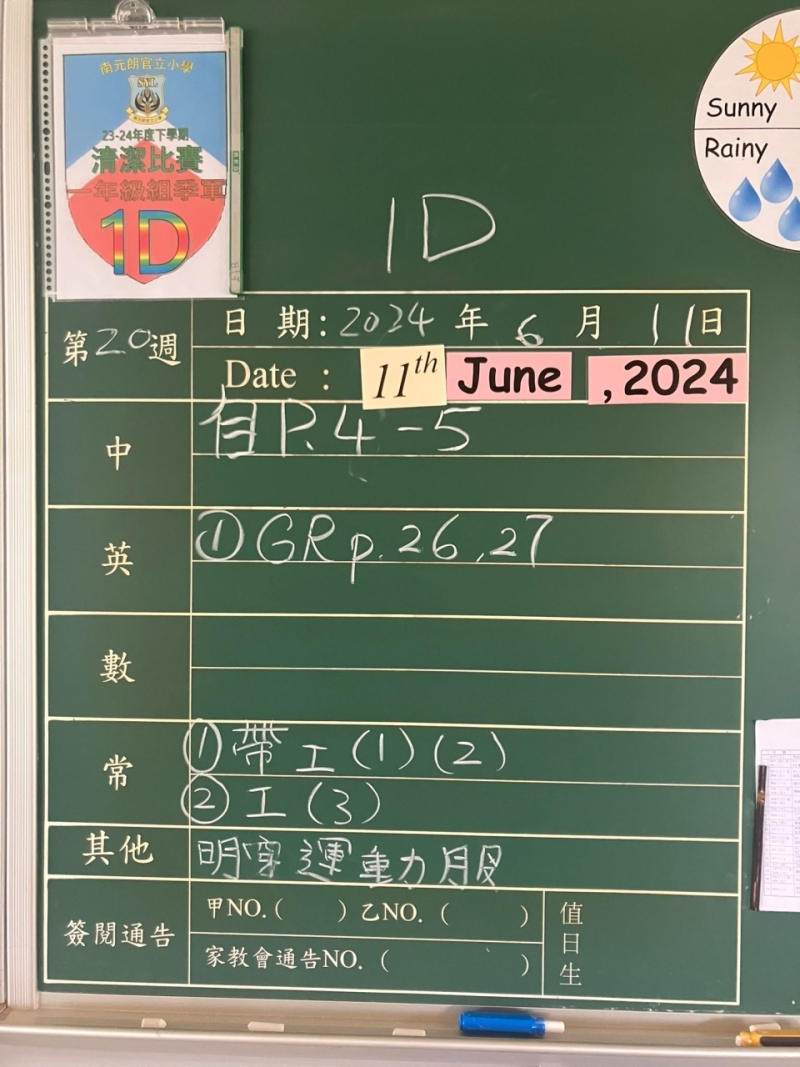 南元朗官立小學
SYL
23-24年度下學期
清潔比賽
一年級組季軍
1D
Sunny
Rainy
1D
第20週
日 期: 2024 年 6 月 11日
Date : 11th June , 2024
中
自P.4-5
英
①GR p.26,27
數
常
①帶工(1)(2)
②工(3)
其他
明穿運動服
簽閱通告
甲NO.( ) 乙NO.( )
家教會通告NO.( )
值日生